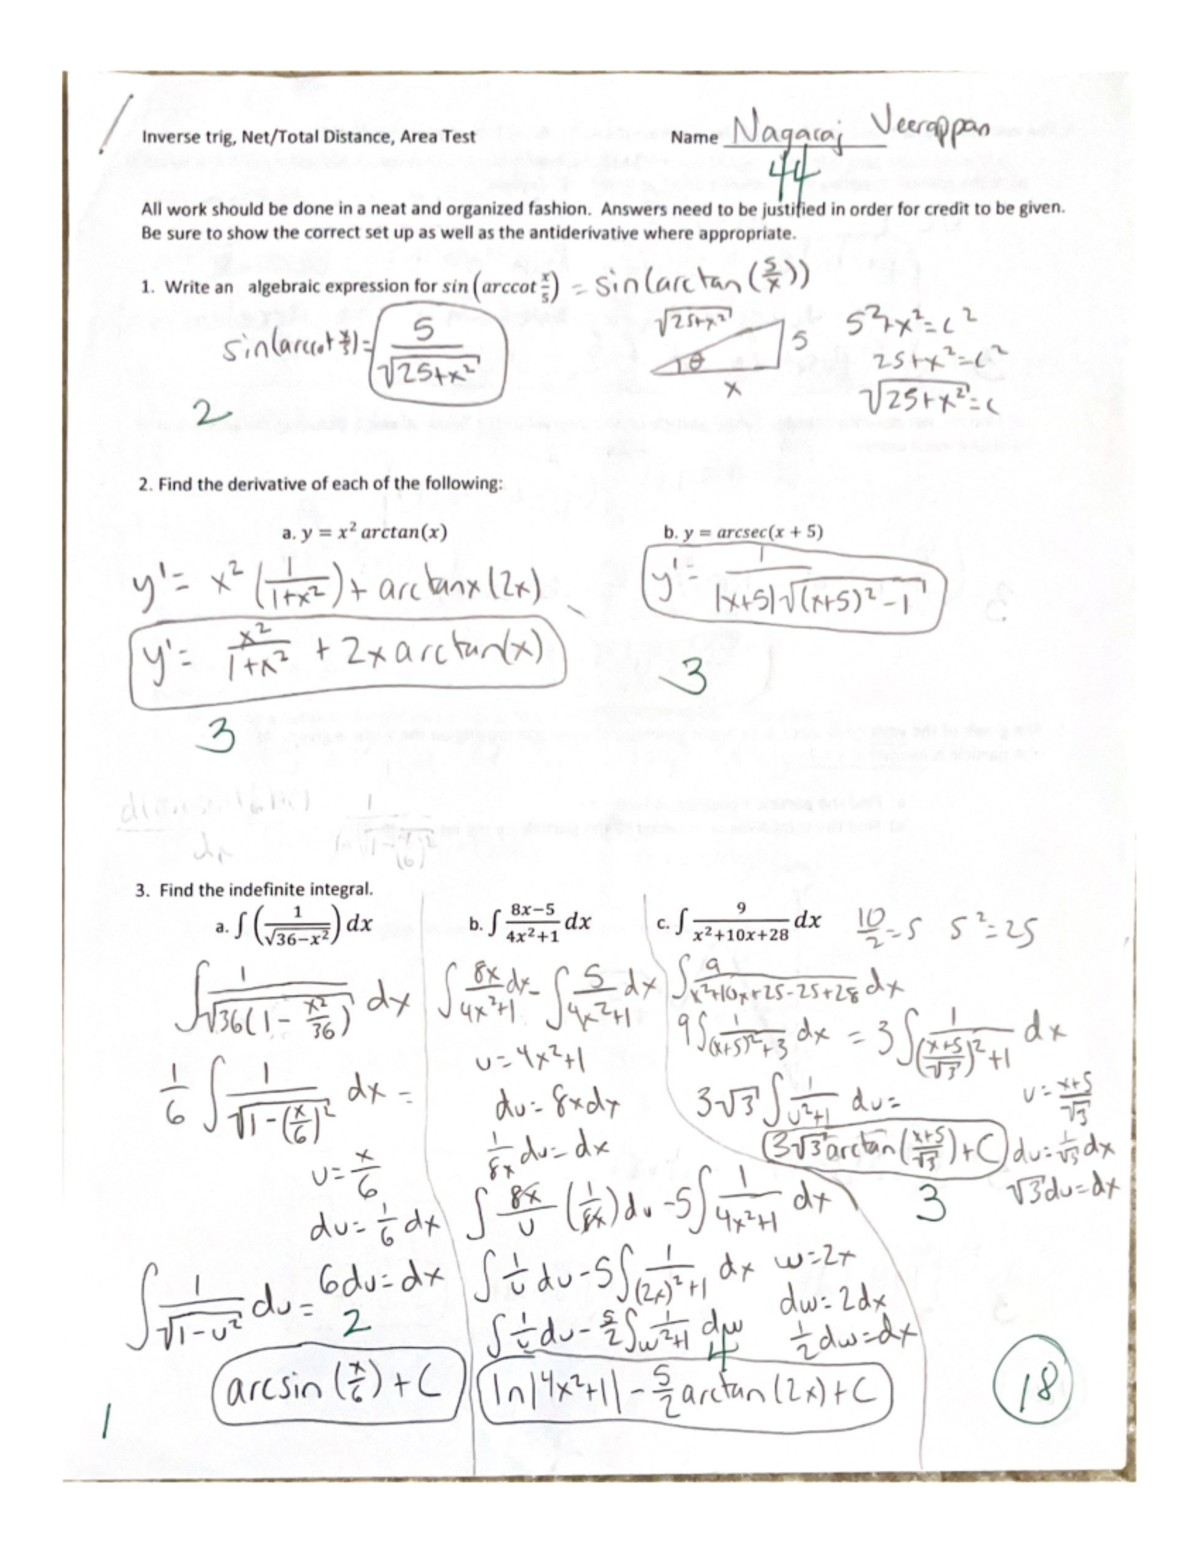 Inverse trig, Net/Total Distance, Area Test Name Nagaraj Veerappan
44
All work should be done in a neat and organized fashion. Answers need to be justified in order for credit to be given.
Be sure to show the correct set up as well as the antiderivative where appropriate.
1. Write an algebraic expression for sin(arccot x/5) = sin(arctan(5/x))
sin(arccot x/5) = 5/√(25+x²)
√(25+x²) 5 θ x
5²+x²=c²
25+x²=c²
√(25+x²)=c
2
2. Find the derivative of each of the following:
a. y = x² arctan(x)
y'= x²(1/(1+x²)) + arctanx(2x)
y'= x²/(1+x²) + 2x arctan(x)
3
b. y = arcsec(x + 5)
y'= 1/(|x+5|√((x+5)²-1))
3
3. Find the indefinite integral.
a. ∫(1/√(36−x²)) dx
∫ 1/√(36(1-x²/36)) dx
1/6 ∫ 1/√(1-(x/6)²) dx =
u= x/6
du= 1/6 dx
6du=dx
∫ 1/√(1-u²) du=
2
arcsin(x/6)+C
b. ∫ (8x−5)/(4x²+1) dx
∫ 8x/(4x²+1) dx - ∫ 5/(4x²+1) dx
u=4x²+1
du=8xdx
1/8x du=dx
∫ 8x/u (1/8x)du -5∫ 1/(4x²+1) dx
∫ 1/u du-5∫ 1/((2x)²+1) dx w=2x
dw=2dx
∫ 1/u du- 5/2 ∫ 1/(w²+1) dw 1/2 dw=dx
4
ln|4x²+1| - 5/2 arctan(2x)+C
c. ∫ 9/(x²+10x+28) dx 10/2=5 5²=25
∫ 9/(x²+10x+25-25+28) dx
9∫ 1/((x+5)²+3) dx = 3∫ 1/(((x+5)/√3)²+1) dx
3√3 ∫ 1/(u²+1) du= u= (x+5)/√3
3√3 arctan((x+5)/√3)+C du= 1/√3 dx
3 √3du=dx
18
1